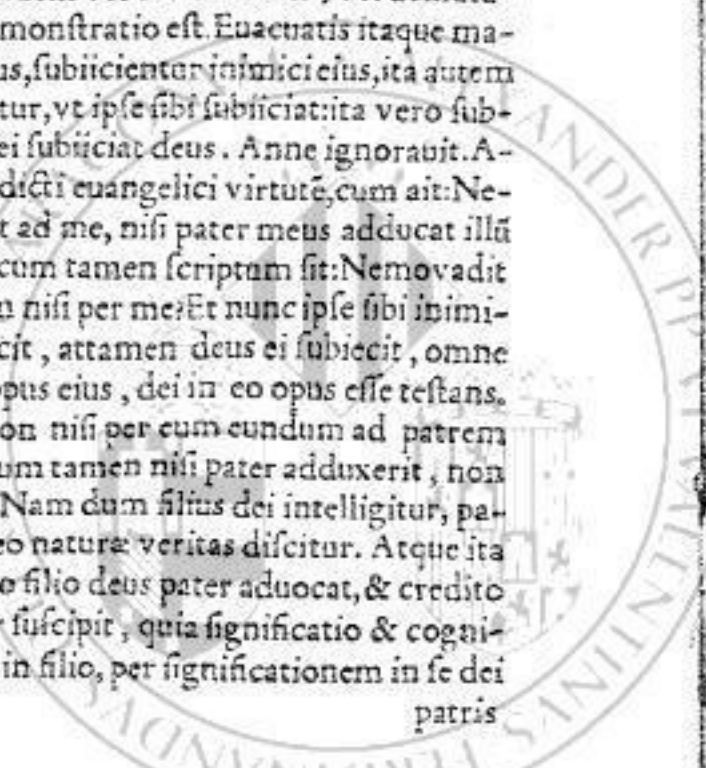 monſtratio eſt. Euacuatis itaque ma-
us, ſubiicientur inimici eius, ita autem
tur, vt ipſe ſibi ſubiiciat: ita vero ſub-
ei ſubiiciat deus. Anne ignorauit. A-
dicti euangelici virtutē, cum ait: Ne-
t ad me, niſi pater meus adducat illū
cum tamen ſcriptum ſit: Nemo vadit
niſi per me? Et nunc ipſe ſibi inimi-
cit, attamen deus ei ſubiecit, omne
opus eius, dei in eo opus eſſe teſtans.
on niſi per eum eundum ad patrem
um tamen niſi pater adduxerit, non
Nam dum filius dei intelligitur, pa-
eo naturæ veritas diſcitur. Atque ita
filio deus pater aduocat, & credito
ſuſcipit, quia ſignificatio & cogni-
in filio, per ſignificationem in ſe dei
patris